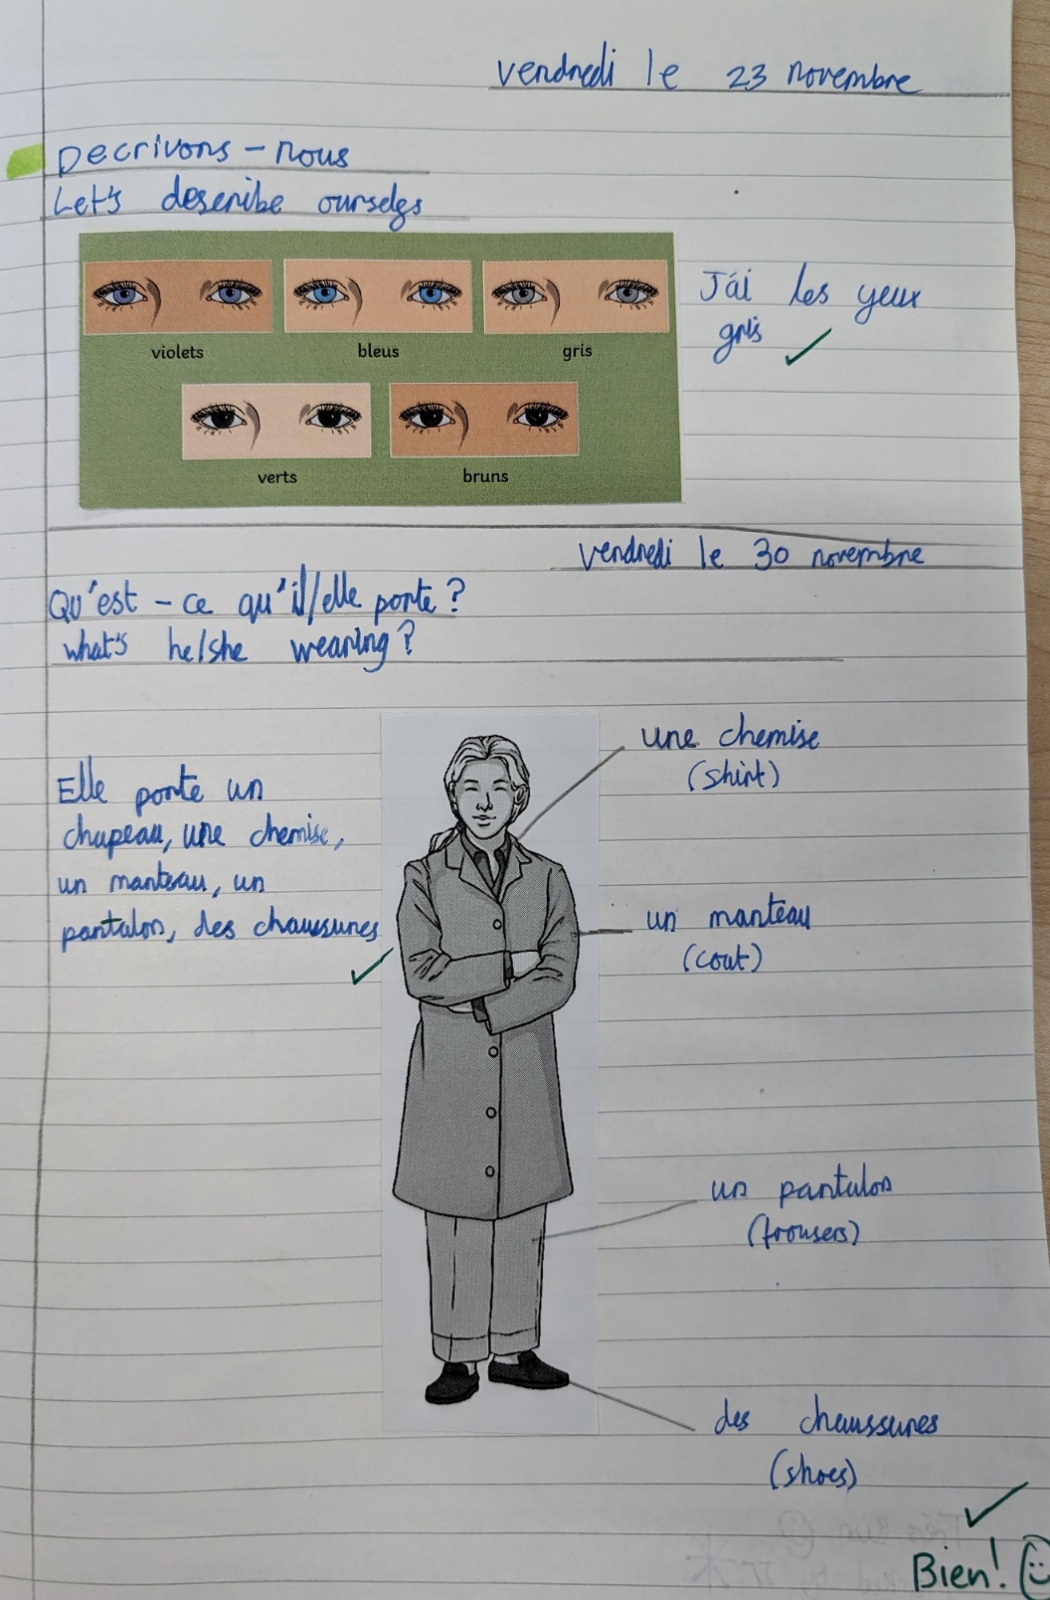 vendredi le 23 novembre
Decrivons - nous
Let's describe ourselves
violets
bleus
gris
verts
bruns
J'ai les yeux
gris
vendredi le 30 novembre
Qu'est - ce qu'il/elle porte?
what's he/she wearing?
Elle porte un
chapeau, une chemise,
un manteau, un
pantalon, des chaussures
une chemise
(shirt)
un manteau
(coat)
un pantalon
(trousers)
des chaussures
(shoes)
Bien!